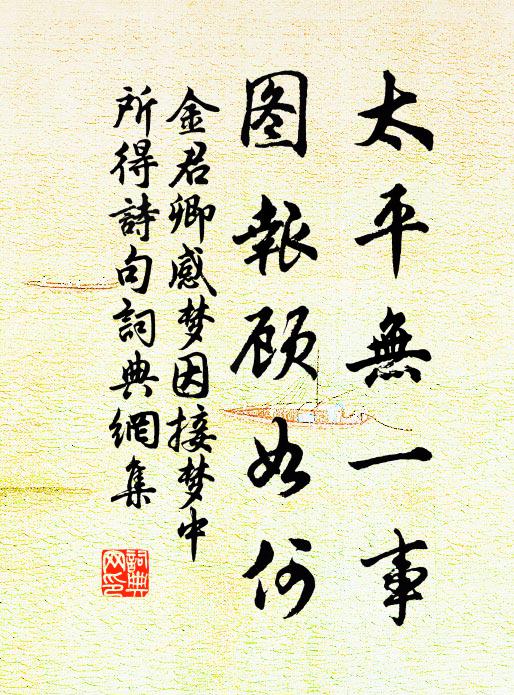 太平無一事
图報顾如何
金君卿感梦因接梦中
所得詩句詞典網集
詞典网印